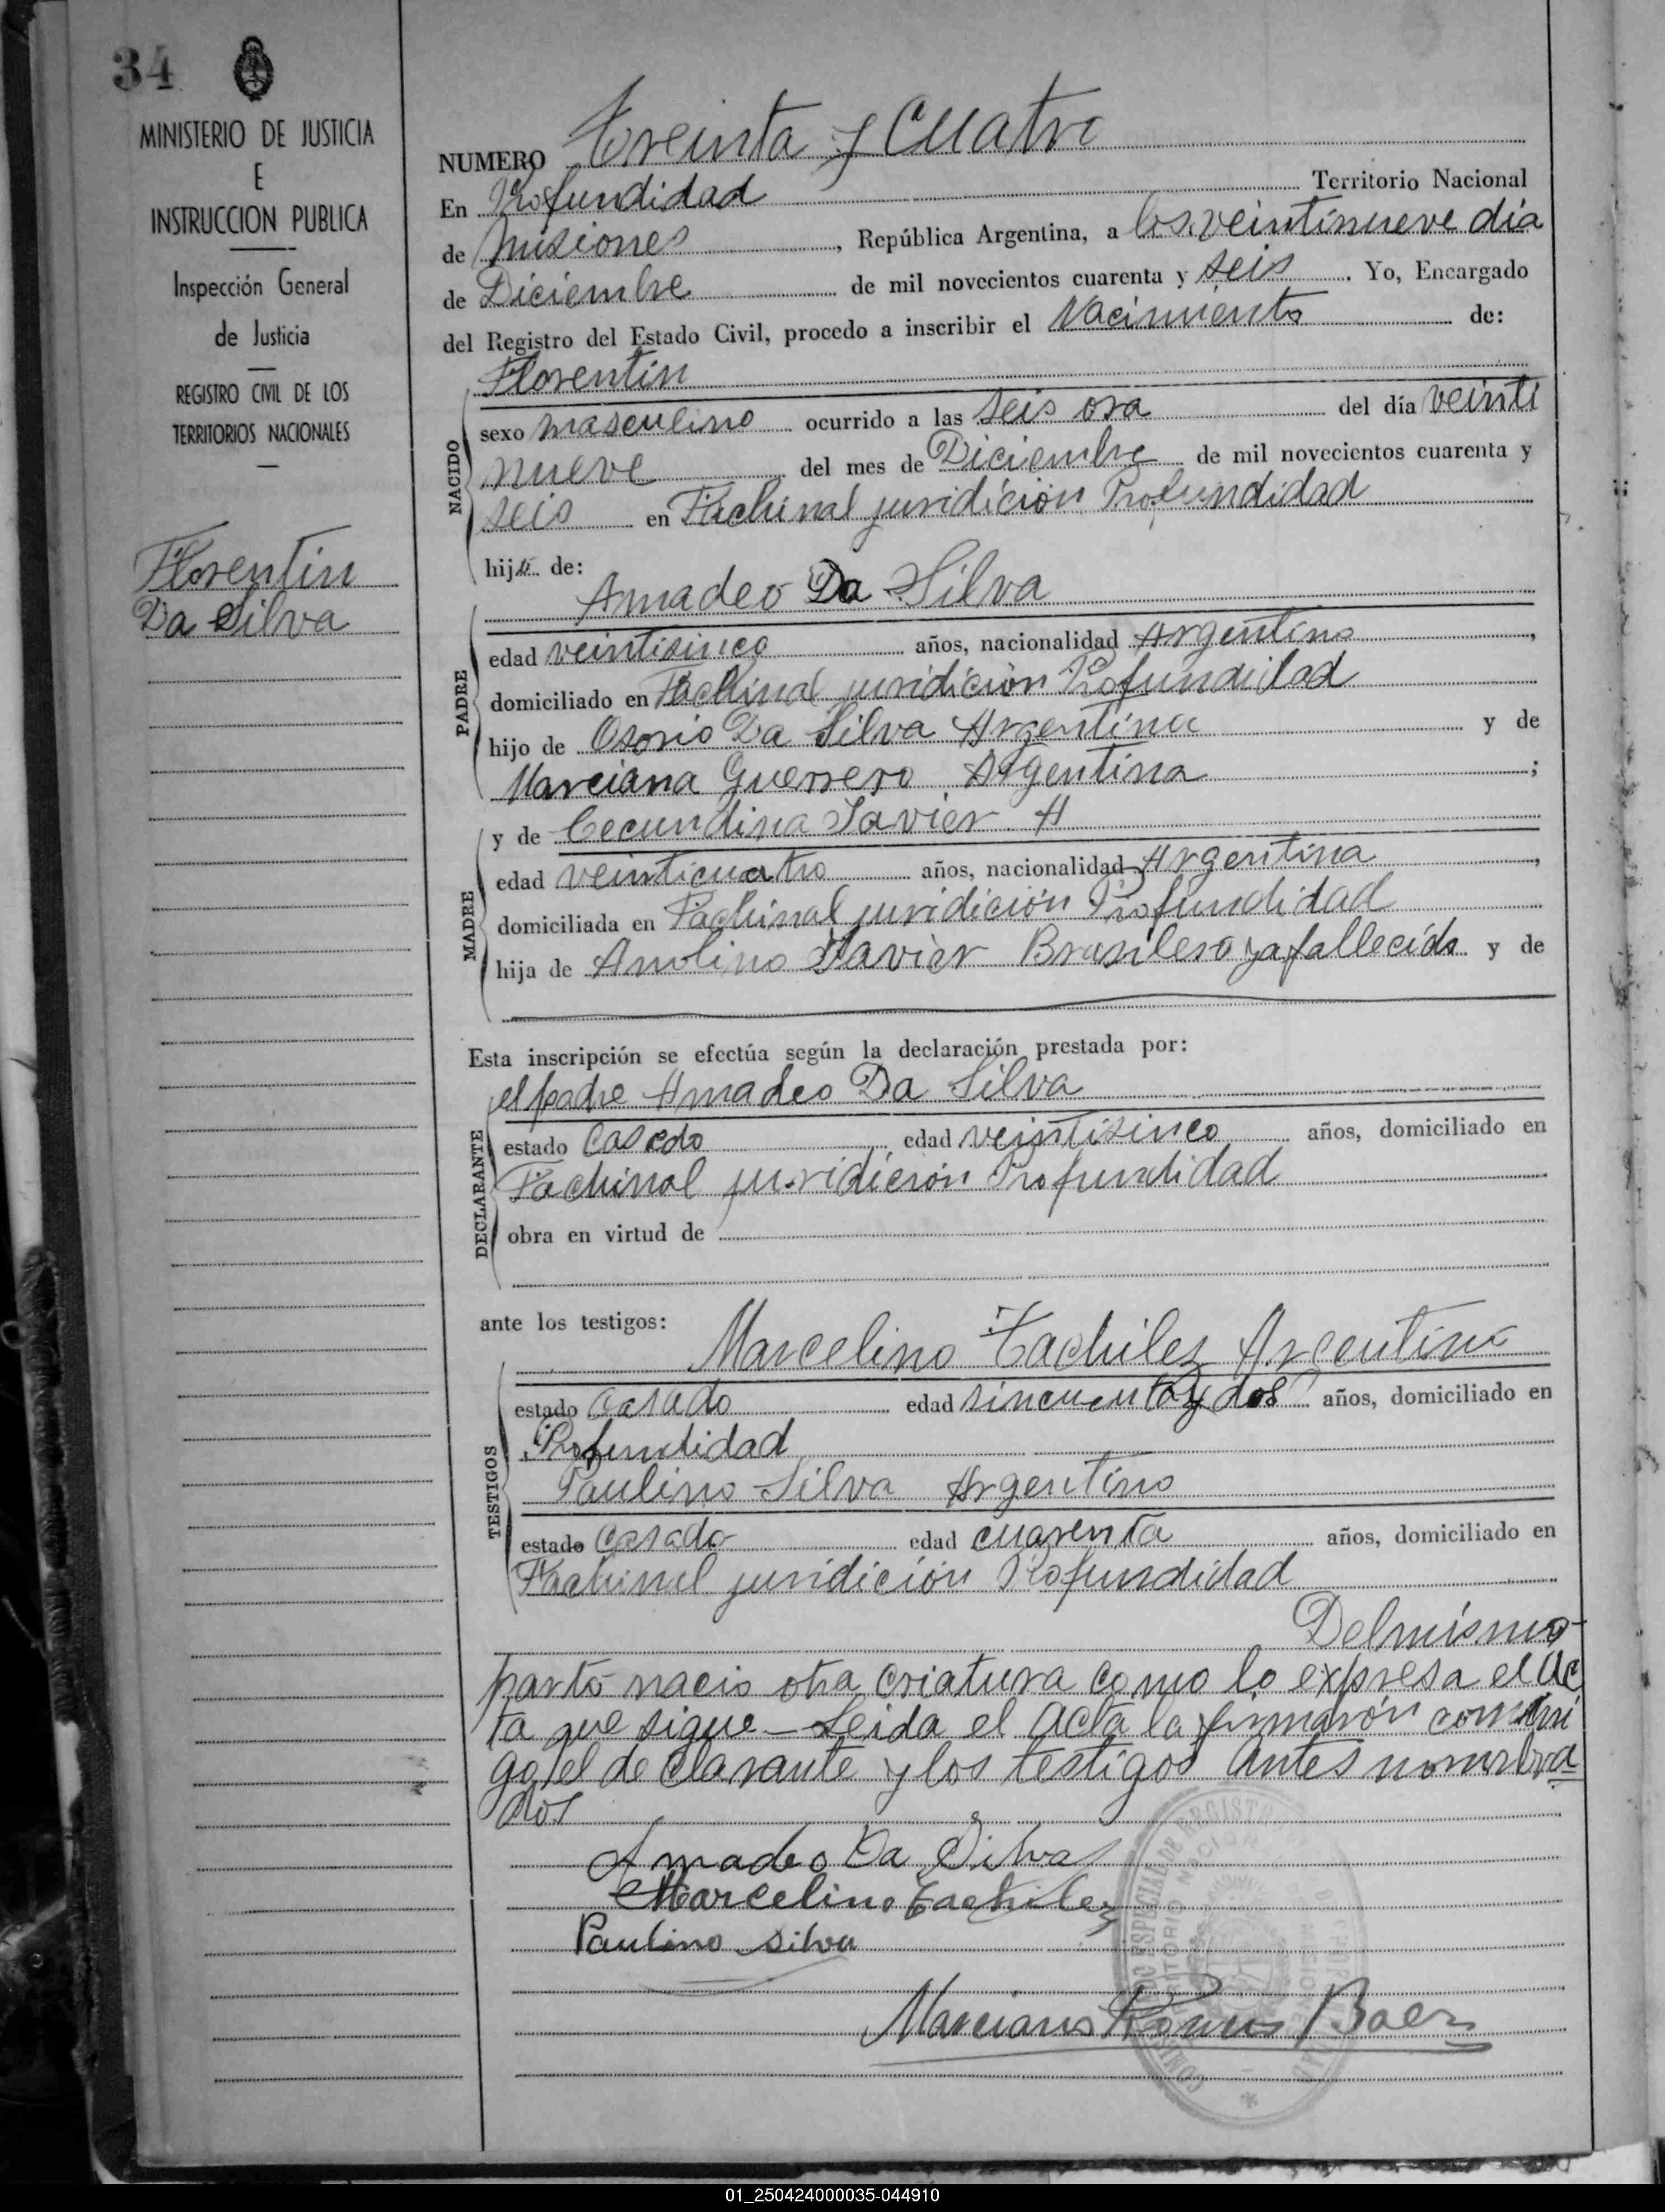 34
MINISTERIO DE JUSTICIA
E
INSTRUCCION PUBLICA
Inspección General
de Justicia
REGISTRO CIVIL DE LOS
TERRITORIOS NACIONALES
Florentin
Da Silva
NUMERO Treinta y Cuatro
En Profundidad Territorio Nacional
de Misiones, República Argentina, a los veintinueve día
de Diciembre de mil novecientos cuarenta y seis. Yo, Encargado
del Registro del Estado Civil, procedo a inscribir el Nacimiento de:
Florentin
NACIDO
sexo masculino ocurrido a las seis ora del día veinti
nueve del mes de Diciembre de mil novecientos cuarenta y
seis en Fachinal juridición Profundidad
hijo de:
Amadeo Da Silva
PADRE
edad veintisinco años, nacionalidad Argentino,
domiciliado en Fachinal juridición Profundidad
hijo de Osorio Da Silva Argentino y de
Marciana Guerrero Argentina;
y de Cecundina Javier
MADRE
edad veinticuatro años, nacionalidad Argentina,
domiciliada en Fachinal juridición Profundidad
hija de Javier Brasilero ya fallecido y de
Esta inscripción se efectúa según la declaración prestada por:
el padre Amadeo Da Silva
DECLARANTE
estado Casado edad veintisinco años, domiciliado en
Fachinal juridición Profundidad
obra en virtud de
ante los testigos:
Marcelino Tachilez Argentino
TESTIGOS
estado casado edad sincuenta y dos años, domiciliado en
Profundidad
Paulino Silva Argentino
estado casado edad cuarenta años, domiciliado en
Fachinal juridición Profundidad
Del mismo
parto nacio otra criatura como lo expresa el ac
ta que sigue—Leida el acta la firmarón conmi
go, el declarante y los testigos antes nombra
dos
Amadeo Da Silva
Marcelino Tachilez
Paulino Silva
Marciano Baez
01_250424000035-044910